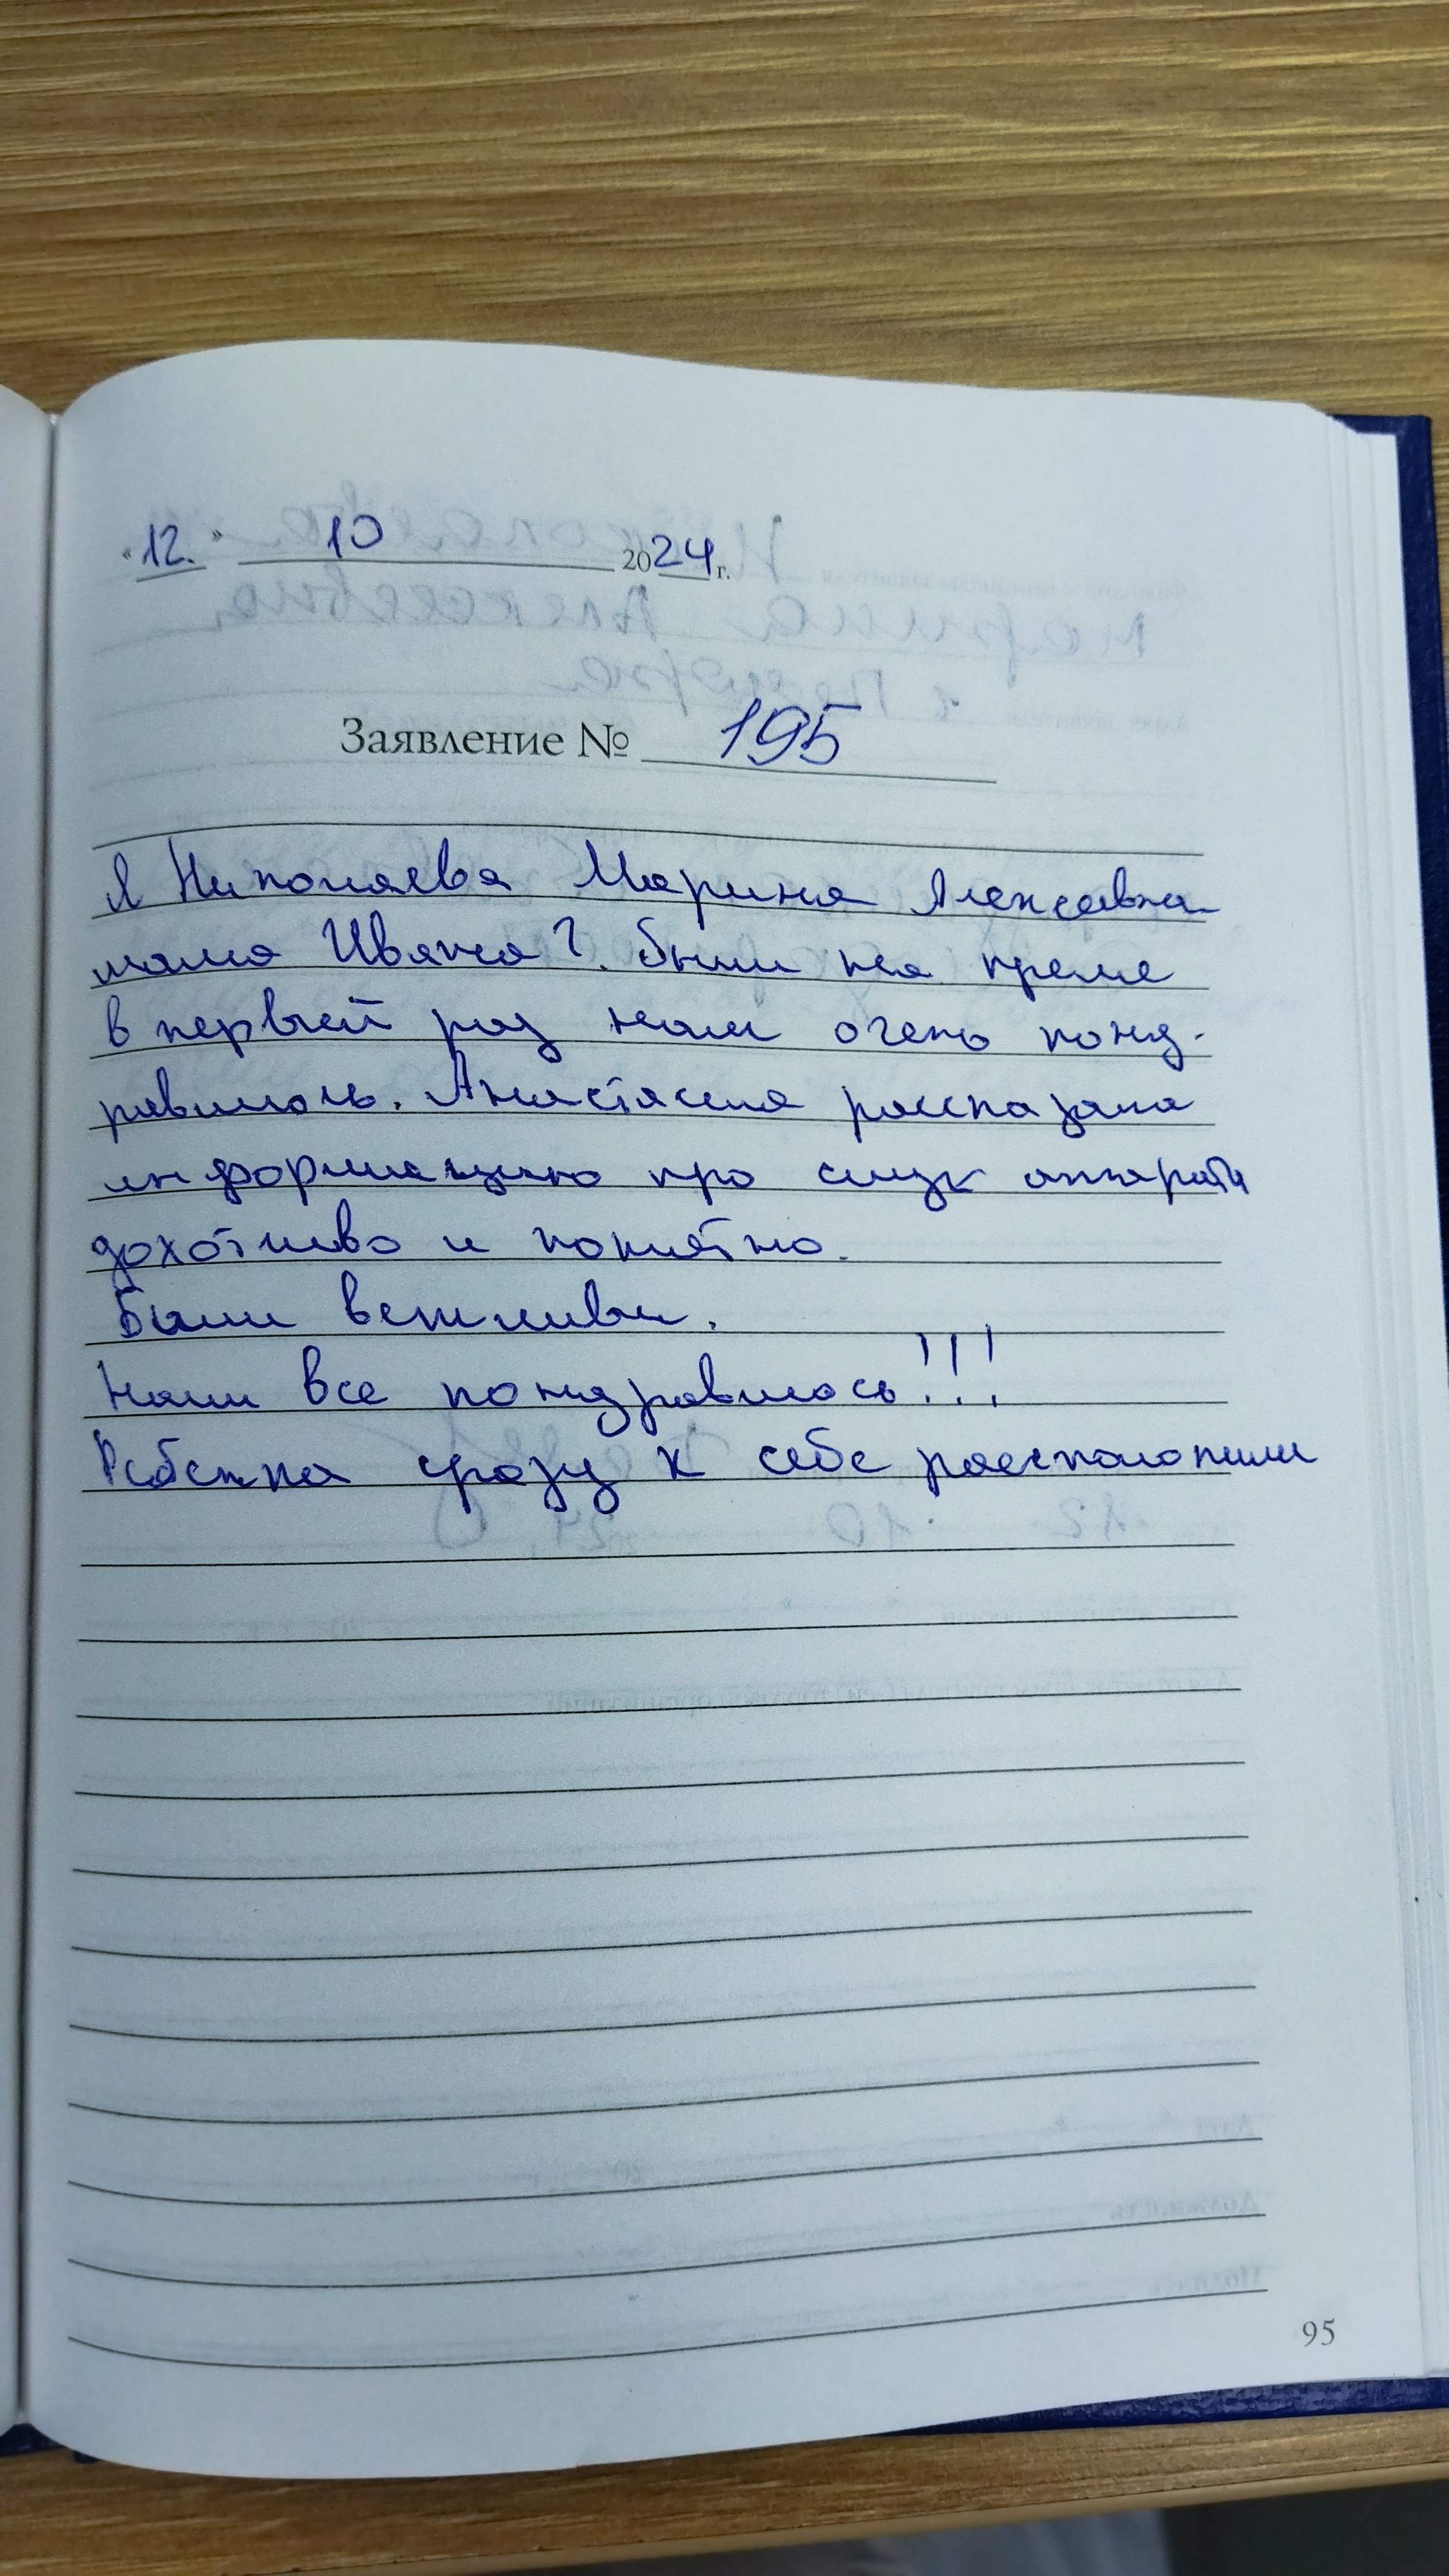 «12.» 10 2024 г.
Заявление № 195
Я Николаева Марина Алексевна
мама Ивана Г. были на преме
в первый раз нам очень понд-
равилось. Анастасия рассказала
информацию про слух аппараты
дохотливо и понятно.
Были вежливы.
Нам все пондравилось!!!
Ребенка сразу к себе расспологили
95